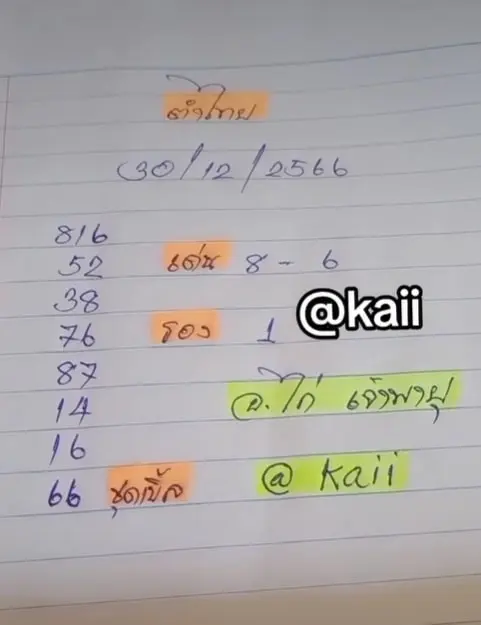 ตำไทย
30/12/2566
816
52 เด่น 8 - 6
38
76 รอง 1 @kaii
87
14 อ.ไก่ เจ้าพายุ
16
66 ชุดเบิ้ล @ Kaii